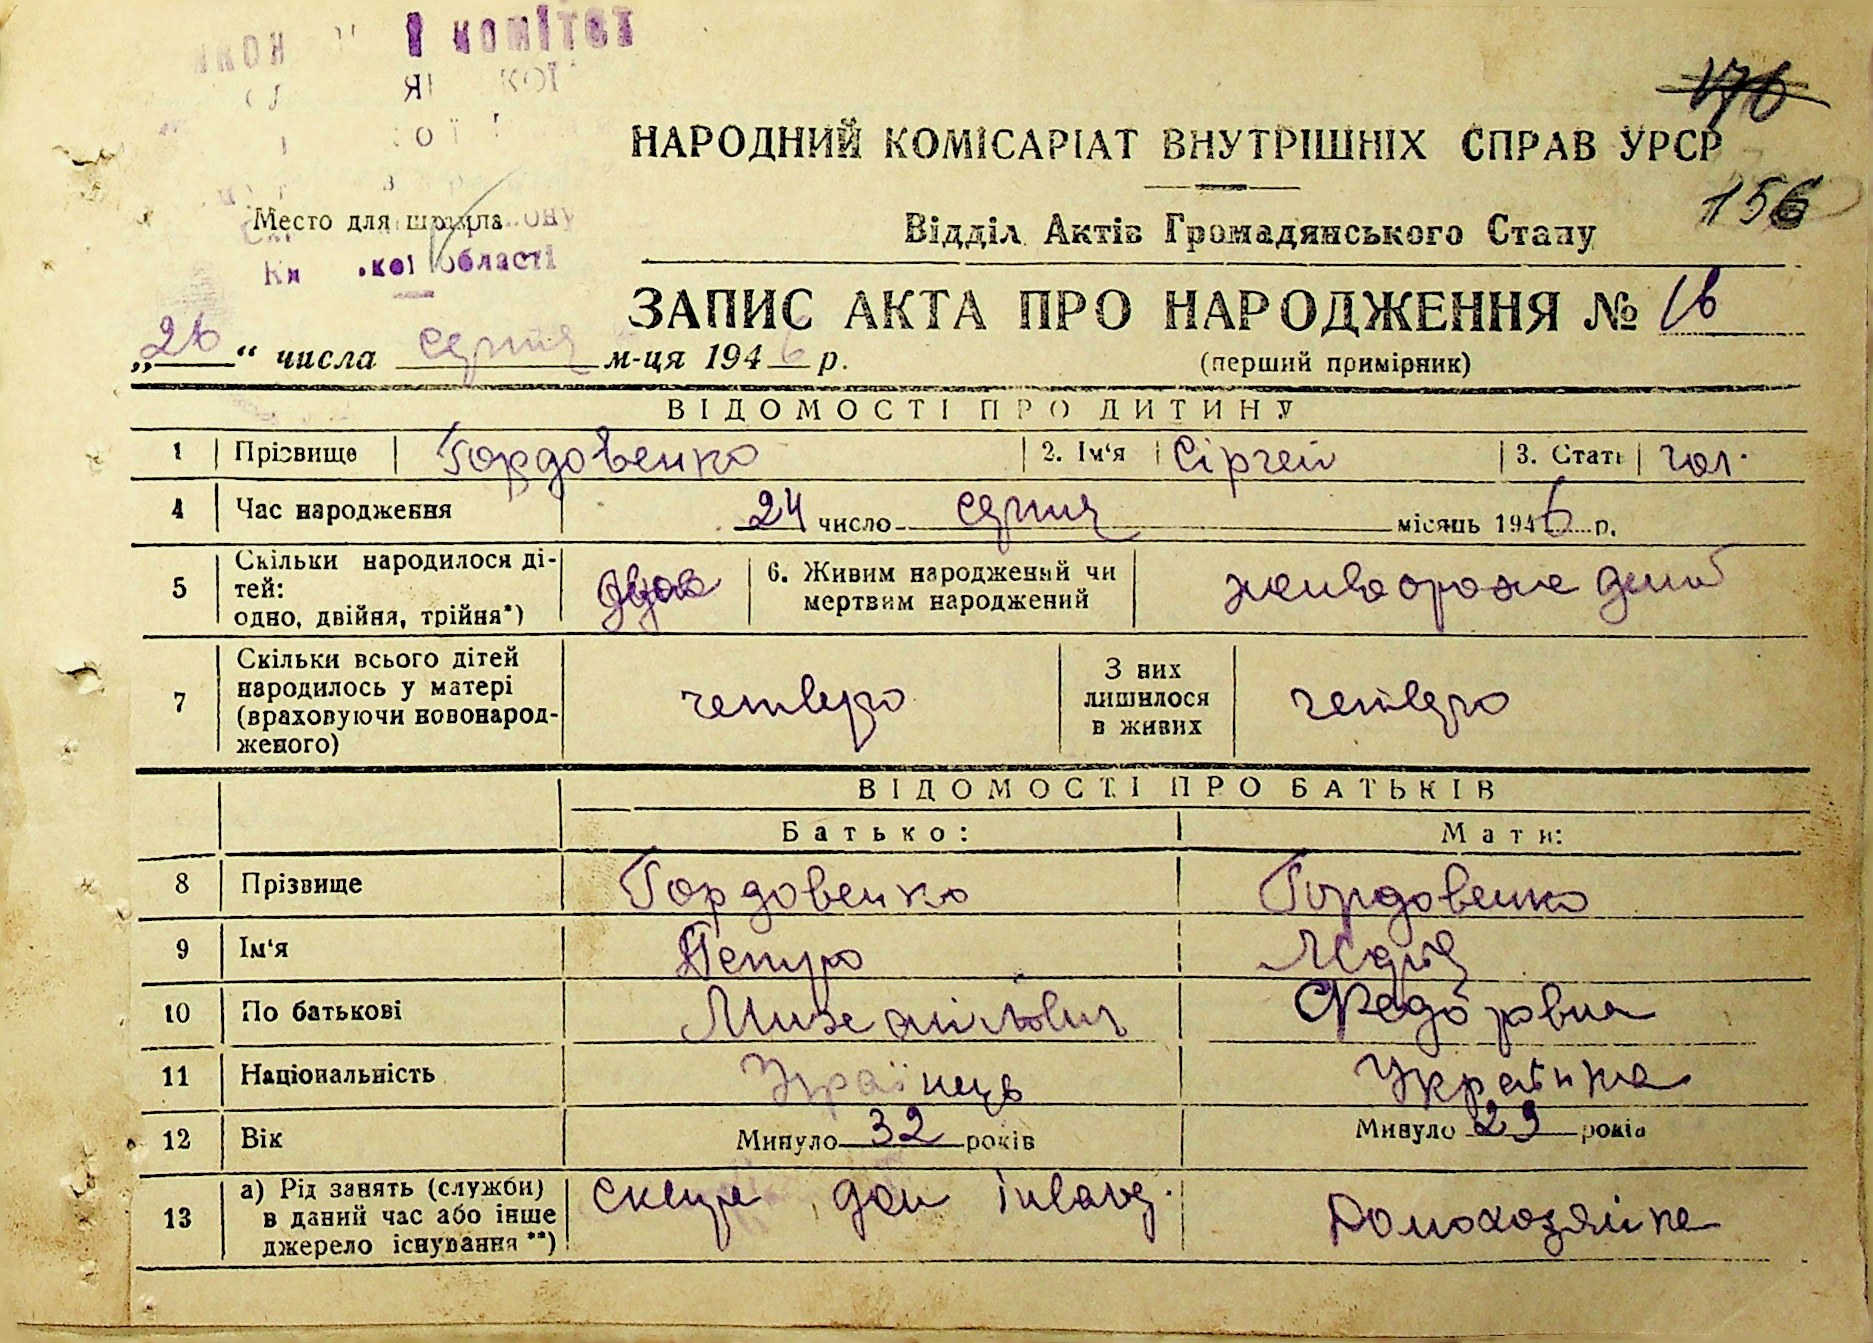 комітет
176
НАРОДНИЙ КОМІСАРІАТ ВНУТРІШНІХ СПРАВ УРСР
156
Место для штампа
Відділ Актів Громадянського Стану
області
ЗАПИС АКТА ПРО НАРОДЖЕННЯ № 16
„26“ числа серпня м-ця 1946 р.
(перший примірник)
ВІДОМОСТІ ПРО ДИТИНУ
1 Прізвище Гордовенко 2. Ім'я Сіргей 3. Стать чол.
4 Час народження 24 число серпня місяць 1946 р.
5 Скільки народилося ді-
тей:
одно, двійня, трійня*)
6. Живим народжений чи
мертвим народжений
7 Скільки всього дітей
народилось у матері
(враховуючи новонарод-
женого)
четверо
З них
лишилося
в живих
четверо
ВІДОМОСТІ ПРО БАТЬКІВ
Батько: Мати:
8 Прізвище Гордовенко Гордовенко
9 Ім'я Петро Марія
10 По батькові Михайлович Федоровна
11 Національність Українець Українка
12 Вік Минуло 32 років Минуло 29 років
13 а) Рід занять (служби)
в даний час або інше
джерело існування **)
Домохозяйка